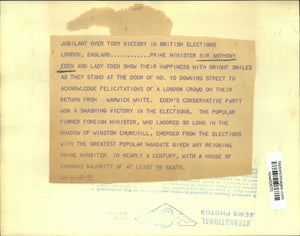 JUBILANT OVER TORY VICTORY IN BRITISH ELECTIONS
LONDON, ENGLAND...........PRIME MINISTER SIR ANTHONY
EDEN AND LADY EDEN SHOW THEIR HAPPINESS WITH BRIGHT SMILES
AS THEY STAND AT THE DOOR OF NO. 10 DOWNING STREET TO
ACKNOWLEDGE FELICITATIONS OF A LONDON CROWD ON THEIR
RETURN FROM WARWICK WHITE. EDEN'S CONSERVATIVE PARTY
WON A SMASHING VICTORY IN THE ELECTIONS. THE POPULAR
FORMER FOREIGN MINISTER, WHO LABORED SO LONG IN THE
SHADOW OF WINSTON CHURCHILL, EMERGED FROM THE ELECTIONS
WITH THE GREATEST POPULAR MANDATE GIVEN ANY REIGNING
PRIME MINISTER IN NEARLY A CENTURY, WITH A HOUSE OF
COMMONS MAJORITY OF AT LEAST 59 SEATS.
5-28-55
INTERNATIONAL
NEWS PHOTOS